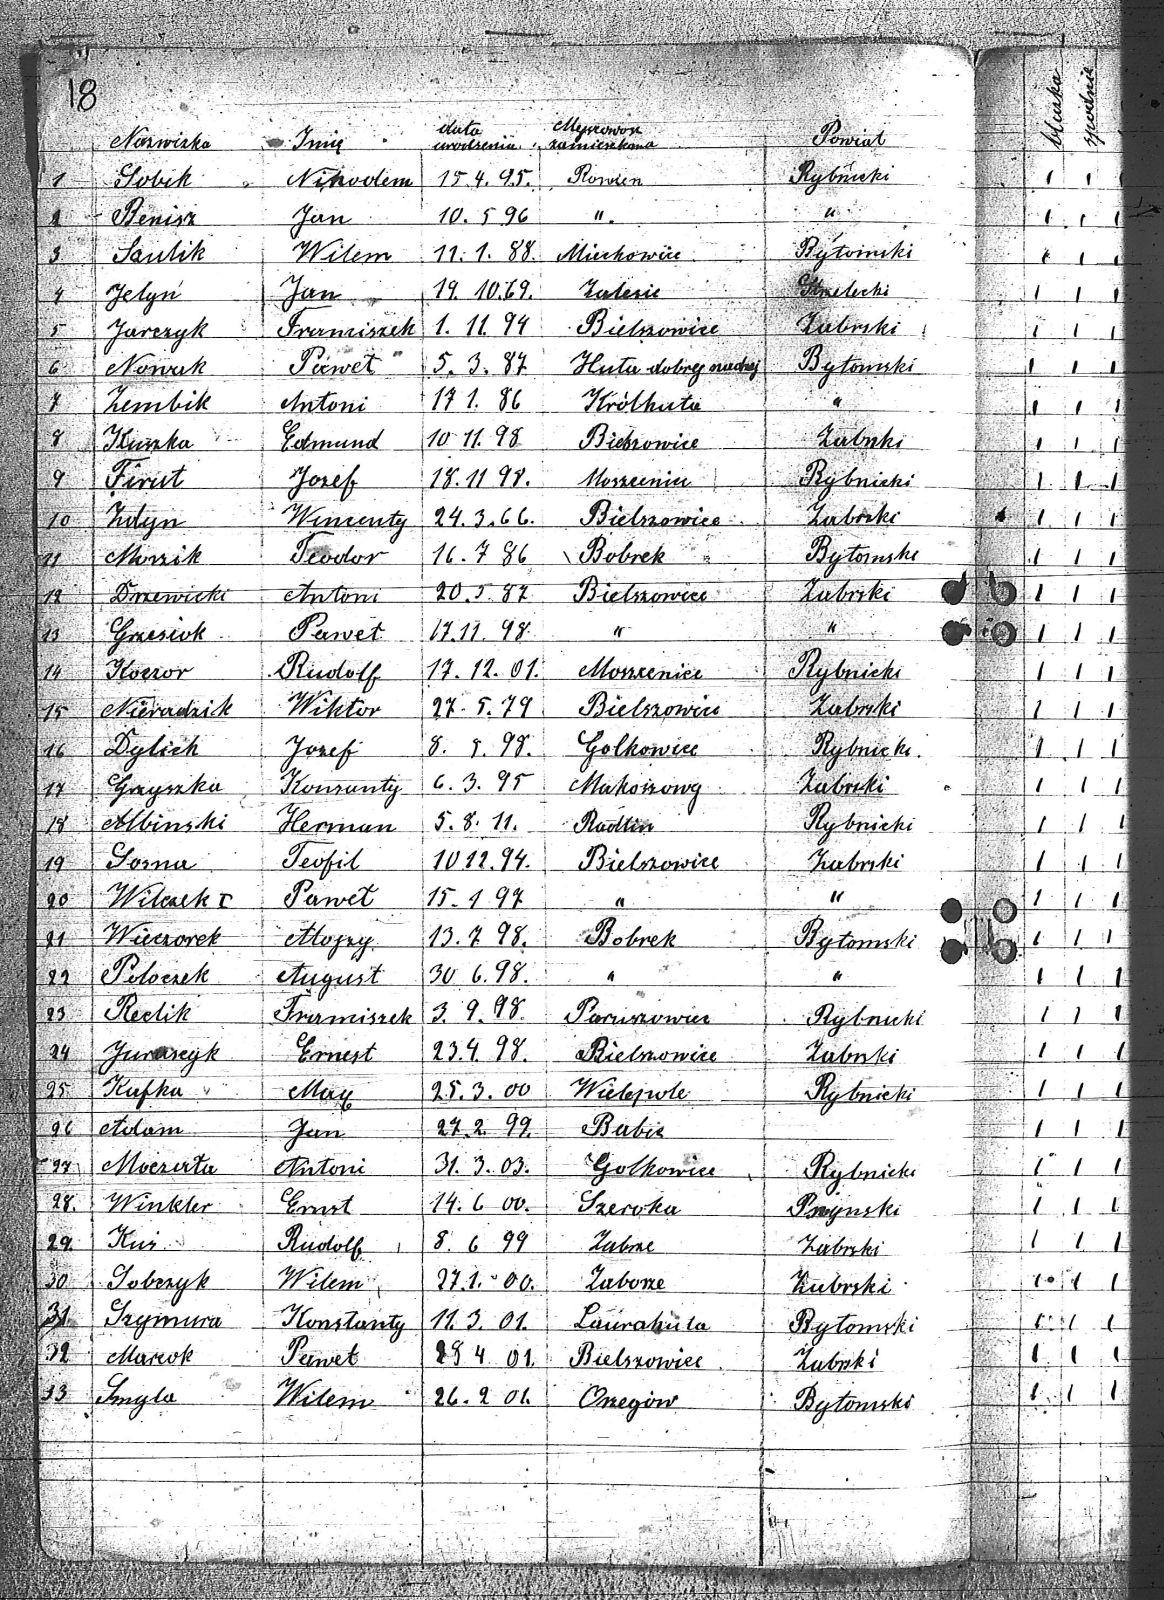 18
Nazwizka Imię data urodzenia zamieszkana Powiat bluzka spodnie
1 Sobik Nikodem 15.4.95. Rowien Rybnicki 1 1 1
2 Benisz Jan 10.5 96 ". " 1 1 1
3 Saulik Wilem 11.1.88. Miechowice Bytomski 1 1 1
4 Jelyń Jan 19.10.69. Zalesie Strzelecki 1 1 1
5 Jarczyk Franciszek 1.11.94 Bielszowice Zabrski 1 1 1
6 Nowak Paweł 5.3.87 Huta dobrej nadzej Bytomski 1 1 1
7 Zembik Antoni 17 1.86 Królhuta " 1 1 1
8 Kuszka Edmund 10 11.98 Bielszowice Zabrski 1 1 1
9 Firut Jozef 18.11 98. Moszcenice Rybnicki 1 1 1
10 Zdyn Wincenty 24.3.66. Bielszowice Zabrski 1 1 1
11 Morzik Teodor 16.7 86 Bobrek Bytomski 1 1 1
12 Drzewicki Antoni 20.5 87 Bielszowice Zabrski 1 1 1
13 Grzesiok Paweł 17.11.98. " " 1 1 1
14 Koczor Rudolf 17.12.01. Moszcenice Rybnicki 1 1 1
15 Nieradzik Wiktor 27.5.79 Bielszowice Zabrski 1 1 1
16 Dylich Jozef 8. 5.98. Golkowice Rybnicki. 1 1 1
17 Gryszka Konzanty 6.3.95 Makoszowy Zabrski 1 1 1
18 Albinski Herman 5.8.11. Radlin Rybnicki 1 1 1
19 Sosna Teofil 10 12.94. Bielszowice Zabrski 1 1 1
20 Wilczek I Paweł 15.1 97 " " 1 1 1
21 Wieczorek Alojzy 13.7 98. Bobrek Bytomski 1 1 1
22 Poloczek August 30 6.98. " " 1 1 1
23 Reclik Franciszek 3.9.98. Paruszowiec Rybnicki 1 1 1
24 Juraszyk Ernest 23.4.98. Bielszowice Zabrski 1 1 1
25 Kafka Max 25.3.00 Wielepole Rybnicki 1 1 1
26 Adam Jan 27.2.99. Babie 1 1 1
27 Moczarta Antoni 31.3.03. Golkowice Rybnicki 1 1 1
28. Winkler Ernst 14.6 00. Szeroka 1 1 1
29. Kuś Rudolf 8.6 99 Zabrze Zabrski 1 1 1
30 Sobczyk Wilem 27.1.00. Zaborze Zabrski 1 1 1
31 Szymura Konstanty 11.3.01. Laurahuta Bytomski 1 1 1
32 Marcok Paweł 4 01. Bielszowice Zabrski 1 1 1
33 Smyla Wilem 26.2 01. Orzegów Bytomski 1 1 1